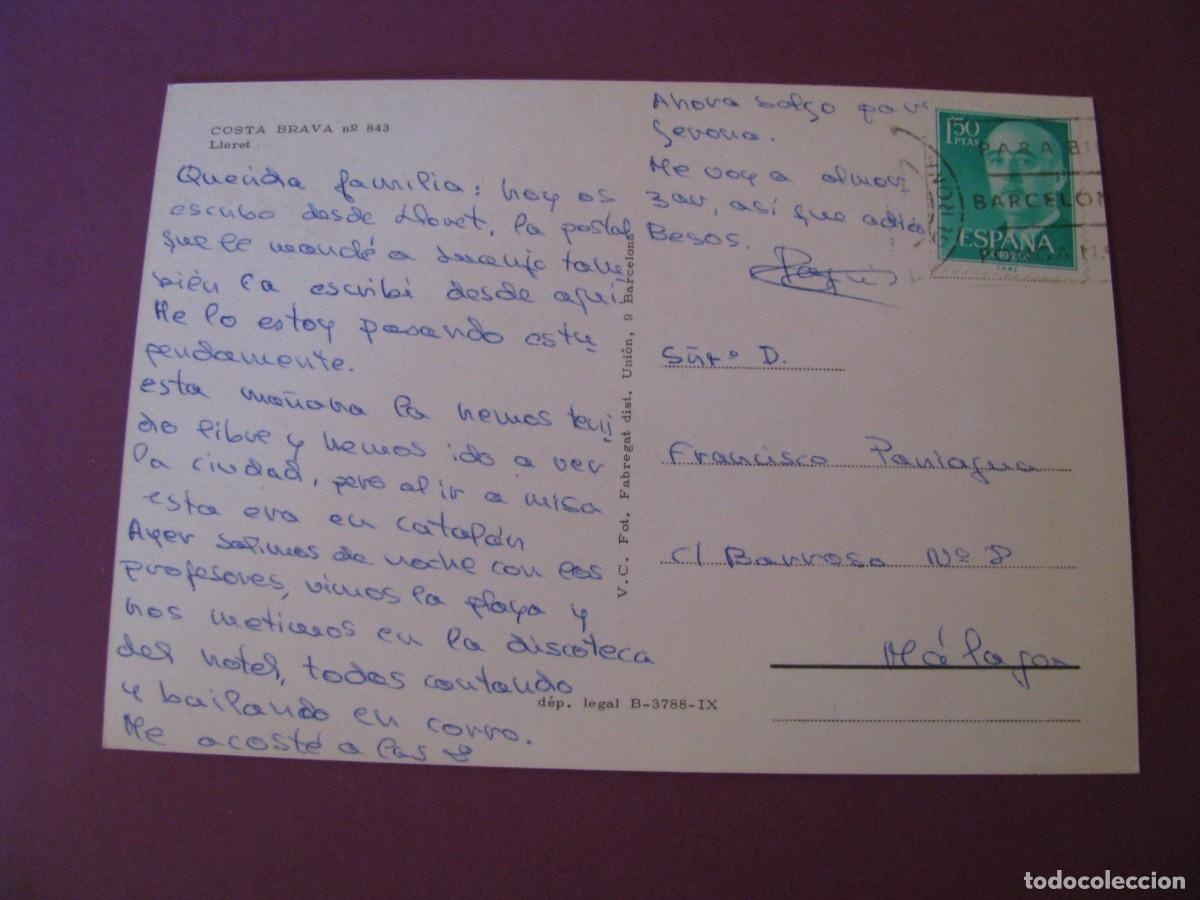 COSTA BRAVA nº 843
Lloret
Querida familia: hoy os
escribo desde Lloret, la postal
que le mandé a Juanjo tam
bién la escribí desde aquí.
Me lo estoy pasando estu
pendamente.
esta mañana la hemos teni
do libre y hemos ido a ver
la ciudad, pero al ir a misa
esta era en catalán
Ayer salimos de noche con los
profesores, vimos la playa y
nos metimos en la discoteca
del hotel, todos cantando
y bailando en corro.
Me acosté a las 8
Ahora salgo para
Gerona.
Me voy a almor
zar, así que adiós
Besos.
V. C. Fot. Fabregat dist. Unión, 9 Barcelona
dép. legal B-3788-IX
1'50
PTAS
ESPAÑA
CORREOS
PARA
BARCELON
Sñr. D.
Francisco Paniagua
C/ Barroso Nº 8
Málaga
todocoleccion